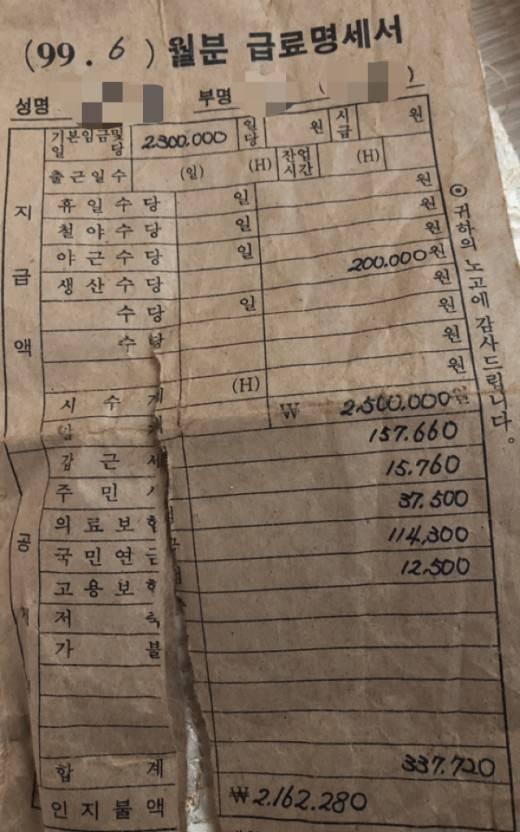 (99. 6) 월분 급료명세서
성명 부명 ( )
기본임금및 일당 2300.000 일당 원 시급 원
출근일수 (일) (H) 잔업시간 (H)
지급액
휴일수당 일 원
철야수당 일 원
야근수당 일 원
생산수당 200.000원
수당 일 원
수당 원
원
시수계 (H)
₩ 2,500,000원
갑근세 157.660
주민 15.760
의료보험 37.500
국민연금 114,300
고용보험 12,500
저축
가불
공
합계 337.720
인지불액 ₩2.162.280
◉ 귀하의 노고에 감사드립니다.